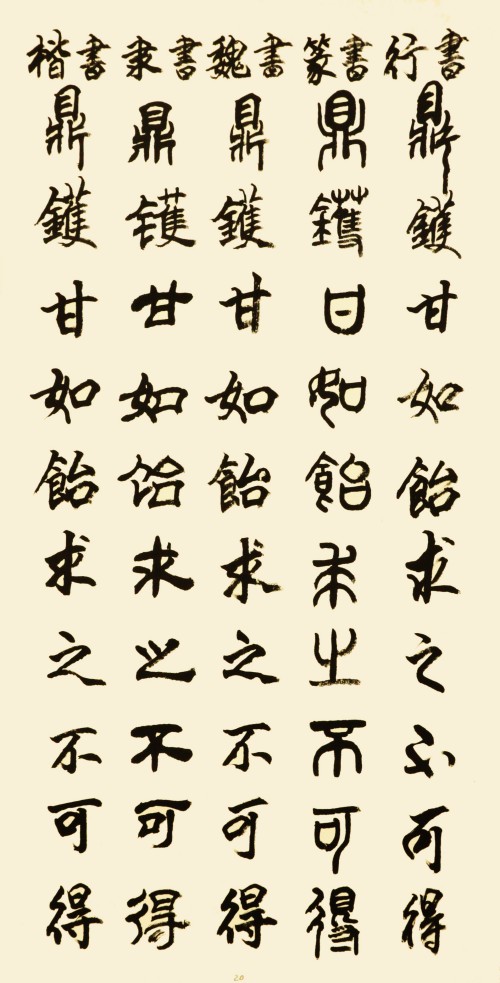 楷書 隶書 魏書 篆書 行書
鼎鑊甘如飴求之不可得
鼎镬甘如饴求之不可得
鼎鑊甘如飴求之不可得
鼎鑊甘如飴求之不可得
鼎鑊甘如飴求之不可得
20